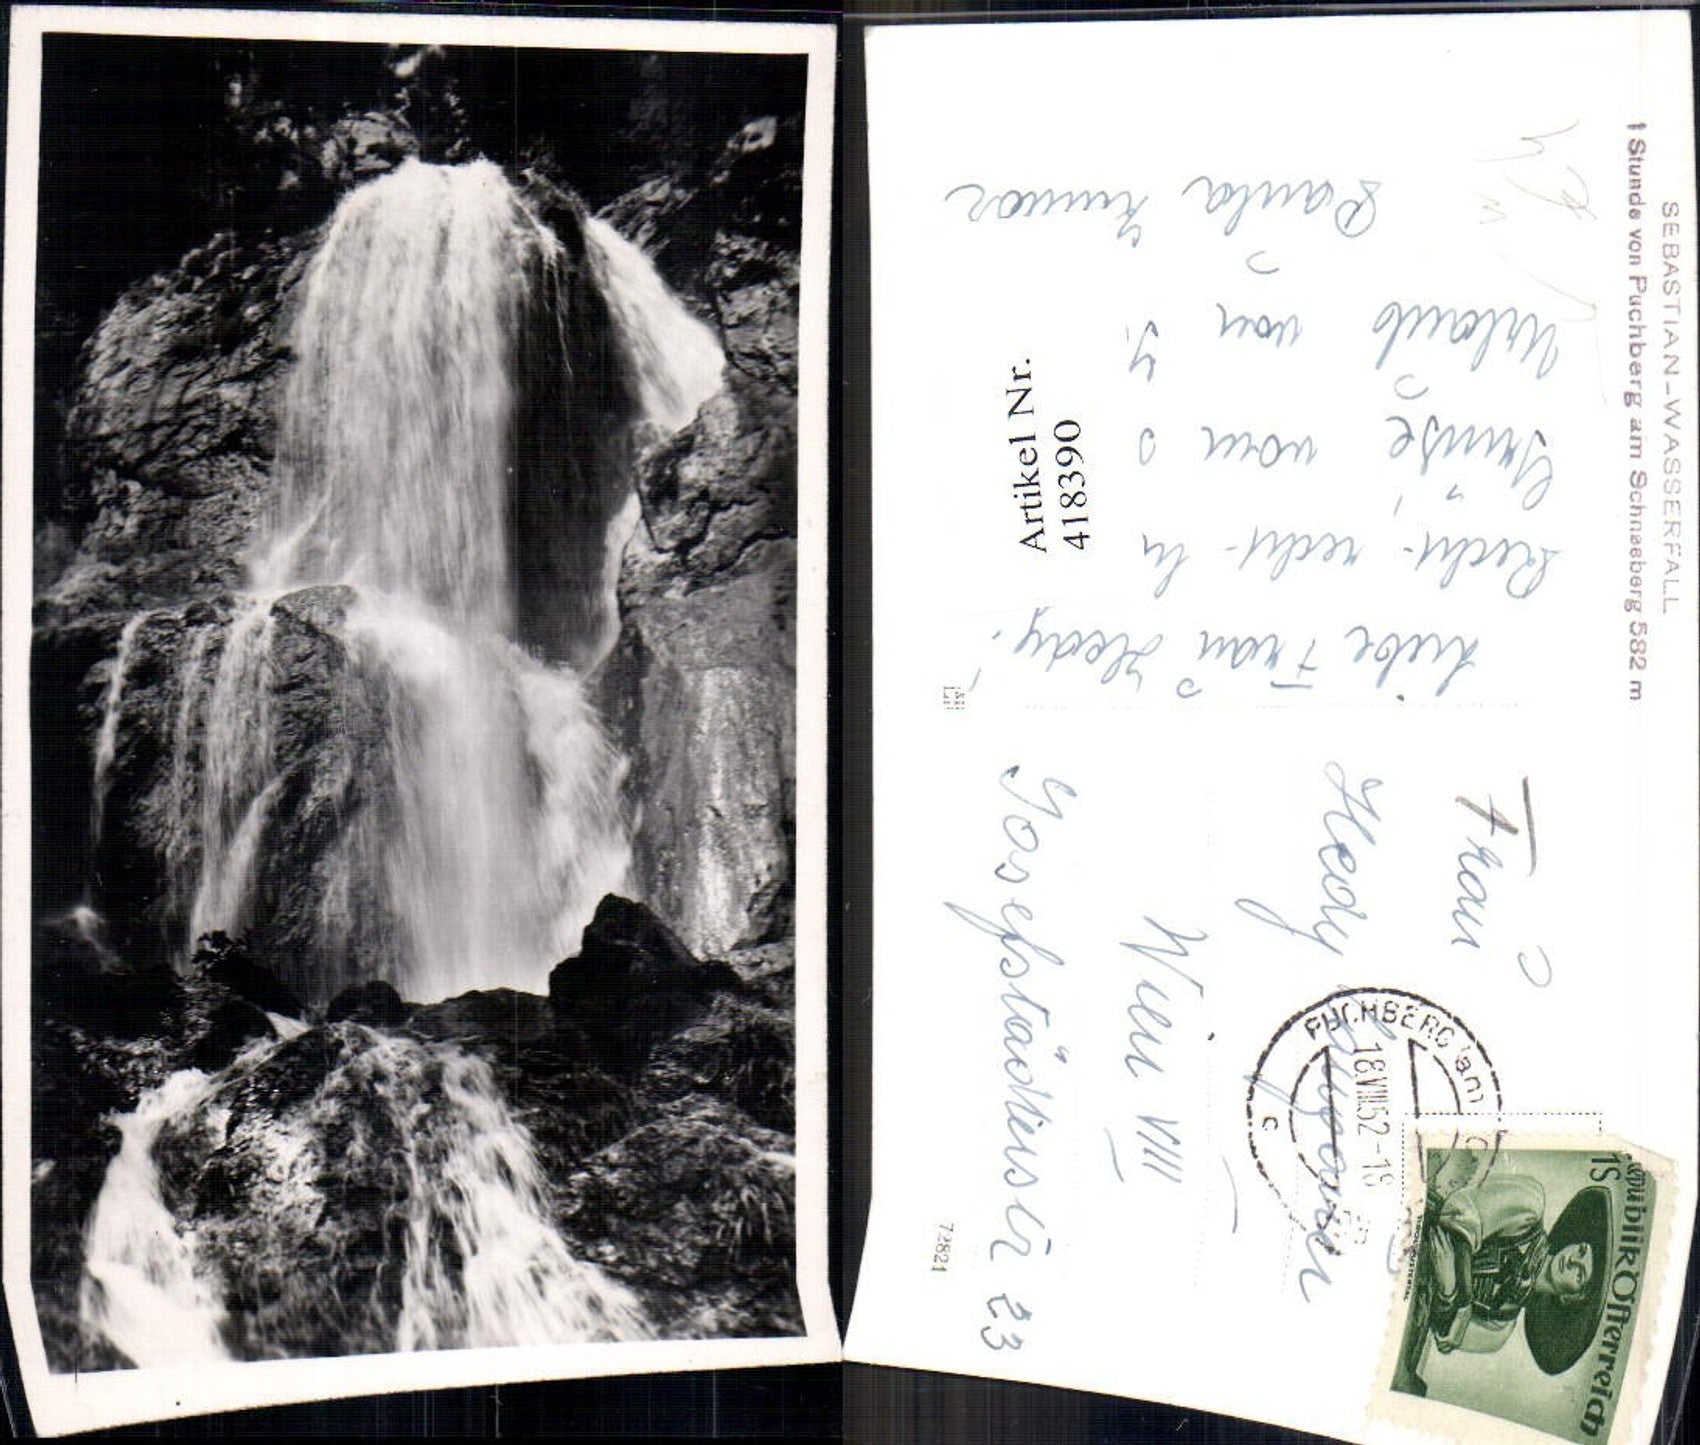 SEBASTIAN-WASSERFALL
1 Stunde von Puchberg am Schneeberg 582 m
Liebe Frau Hedy!
Grüße vom
Urlaub von
Paula
Artikel Nr.
418390
Frau
Hedy
Wien VIII
Josefstädterstr 23
PUCHBERG am
18.VIII.52-18
c
1S
Republik Österreich
72821